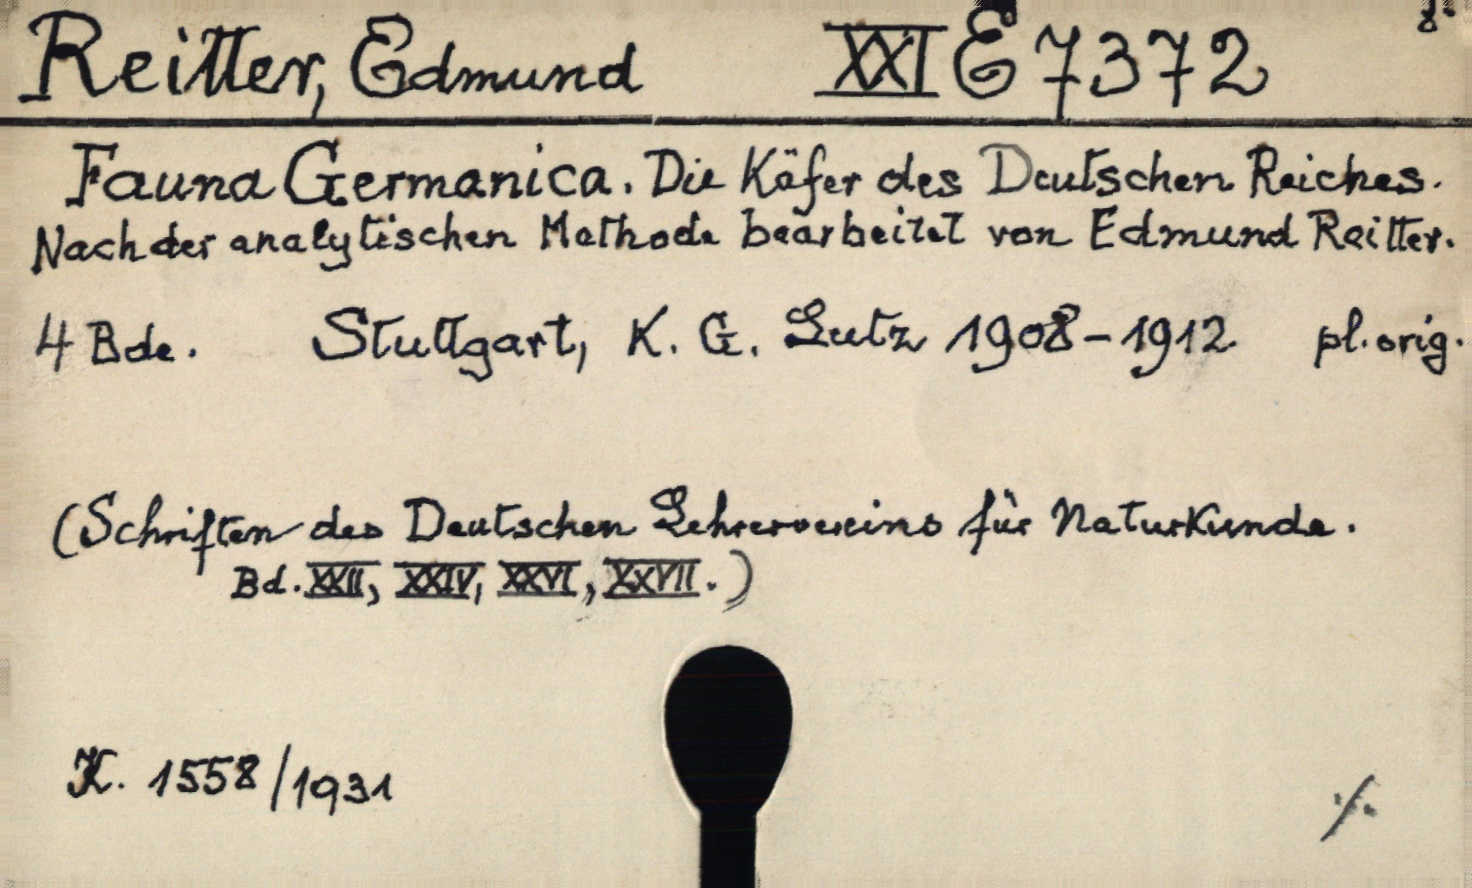 Reitter, Edmund XXI E 7372 8°
Fauna Germanica. Die Käfer des Deutschen Reiches.
Nach der analytischen Methode bearbeitet von Edmund Reitter.
4 Bde. Stuttgart, K. G. Lutz 1908-1912 pl. orig.
(Schriften des Deutschen Lehrervereins für Naturkunde.
Bd. XXII, XXIV, XXVI, XXVII.)
K. 1558/1931 ·/.